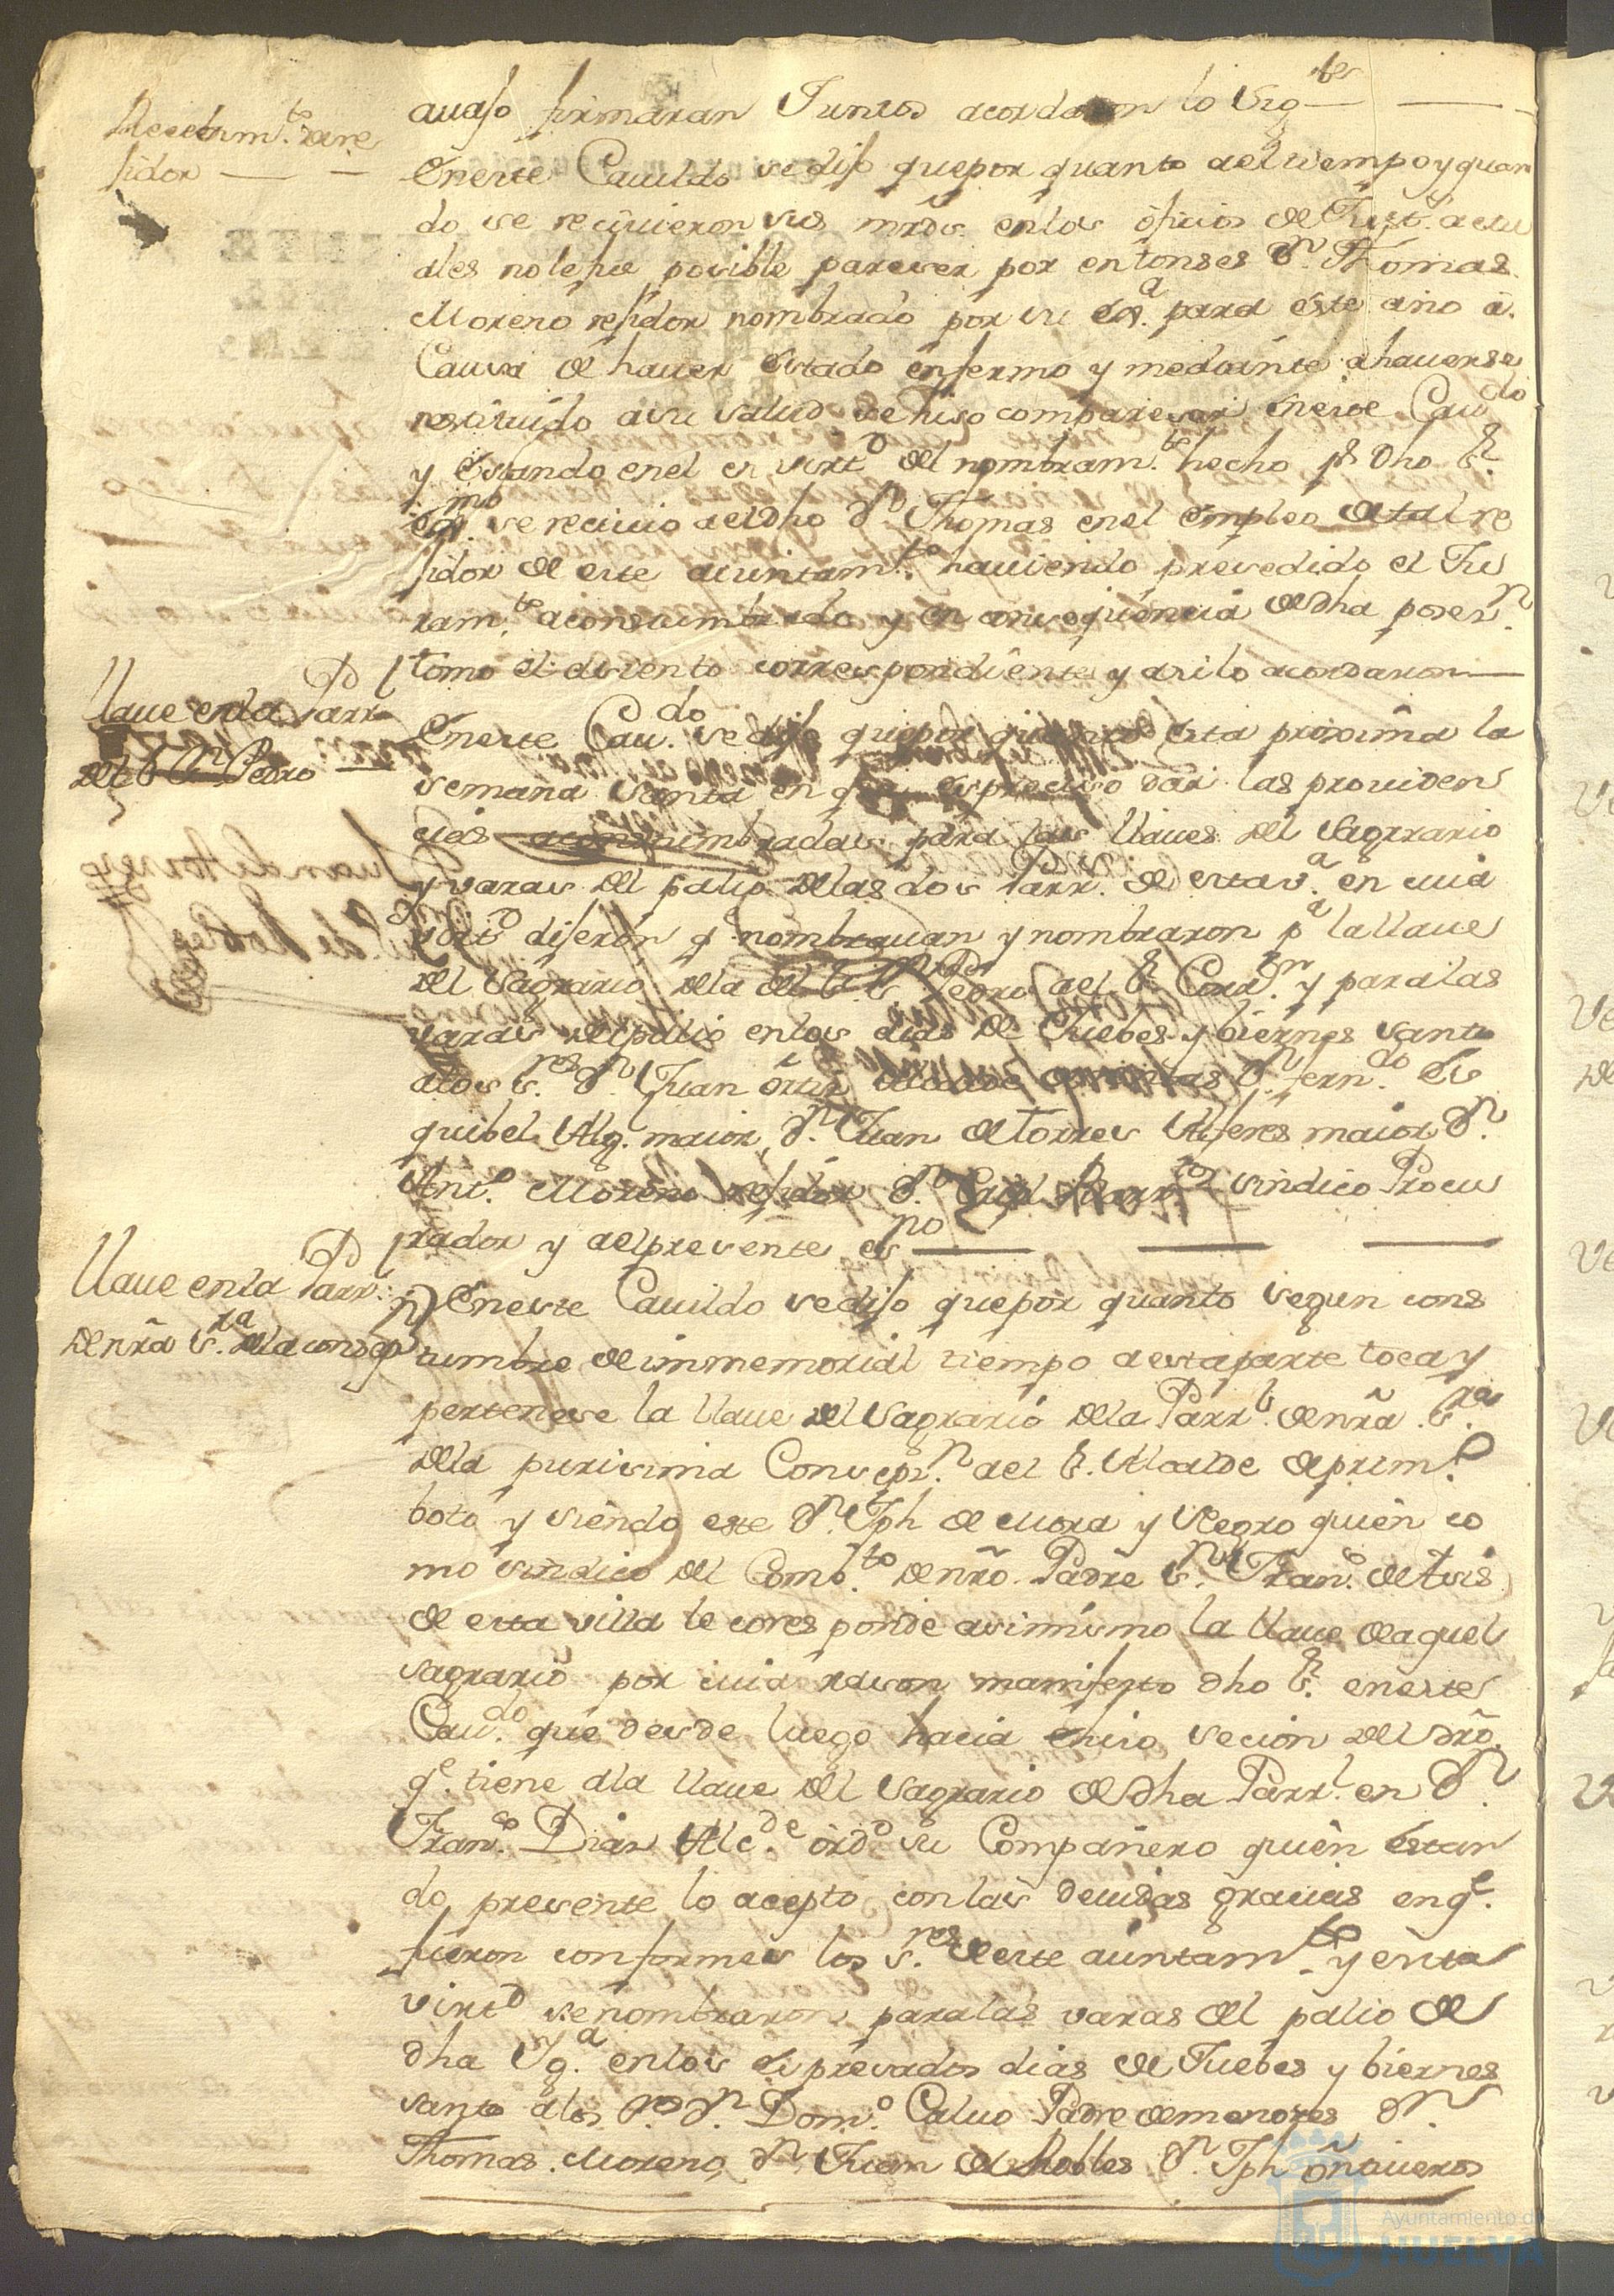 Recebim.to de re
sidor
auajo firmaran Juntos acordaron lo Sig.te
Eneste Cauildo se dijo quepor quanto aeltiempo y quan
do se reciuieron sus mrds. enlos oficios de Just.a actu
ales nolefue posible pareser por entonses Dn. Thomas
Moreno rejidor nombrado por su Ex.a para este año â
Causa de hauer estado enfermo y mediante ahauerse
restituido asu salud se hiso compareser eneste Cau.do
y estando enel en virtd del nombram.to hecho pr dho Sr.
Ex.mo se reciuio aeldho Dn. Thomas enel empleo detal re
jidor de este aiuntam.to hauiendo presedido el Ju
ram.to aconstumbrado y en consequencia dedha poses.n
tomo el asiento correspondiente y asilo acordaron
Llaue enla Parr.
del Sr Sn. Pedro
Eneste Cau.do se dijo quepor quanto esta proxima la
semana santa en que espresiso dar las prouiden
cias aconstumbradas para las llaues del Sagrario
y varas del palio delas dos Parr.s de estav.a en cuia
virtd dijeron q nombrauan y nombraron pa la llaue
del Sagrario dela del Sr. Sn. Pedro ael Sr. Corr.r y paralas
varas delpalio enlos dias de Juebes y biernes santo
alos S.res Dn. Juan ortiz Dn. fern.do Es
quibel Alg. maior, Dn. Juan de Torres Alferes maior Dn.
Ant.o Moreno rejidor Dn. sindico Procu
rador y aelpresente es.no
Llaue enla Parr.
denrã S.ra dela consepn
Eneste Cauildo sedijo quepor quanto segun cons
tumbre deimmemorial tiempo aestaparte toca y
pertenese la llaue del Sagrario dela Parrl. denrã S.ra
dela purisima Consepn. ael Sr. Alcalde deprim.o
boto y siendo este Dn. Jph de Mora y Negro quien co
mo sindico del Comb.to denrõ Padre Sn. Fran.co de Asis
de esta villa le coresponde asimismo la llaue deaquel
sagrario por cuia rason manifesto dho Sr. eneste
Cau.do que desde luego hacia ehiso secion del drõ
qe. tiene ala llaue del Sagrario dedha Parrl. en Dn.
Fran.co Dias Alc.de ordo su Compañero quien estan
do presente lo acepto con las deuidas gracias enqe.
fueron conformes los S.res deeste aiuntam.to y enta
virtd senombraron paralas varas del palio de
dha Yg.a enlos espresados dias de Juebes y biernes
santo alos S.res Dn. Dom.o Caluo Padre demenores Dn.
Thomas Moreno, Dn. Juan de Robles Dn. Jph oñtiueros
Ayuntamiento de
HUELVA